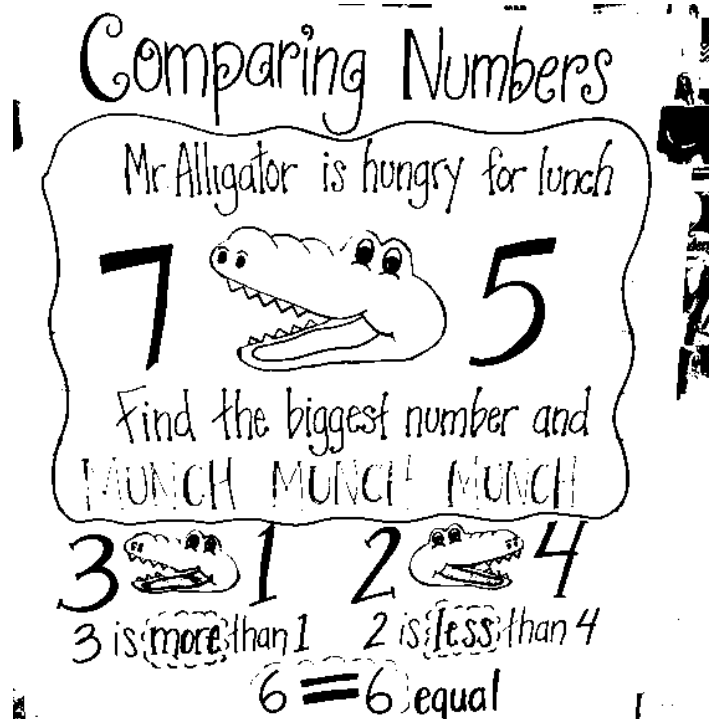 Comparing Numbers
Mr. Alligator is hungry for lunch
7 5
Find the biggest number and
MUNCH MUNCH MUNCH
3 1 2 4
3 is more than 1 2 is less than 4
6 = 6 equal